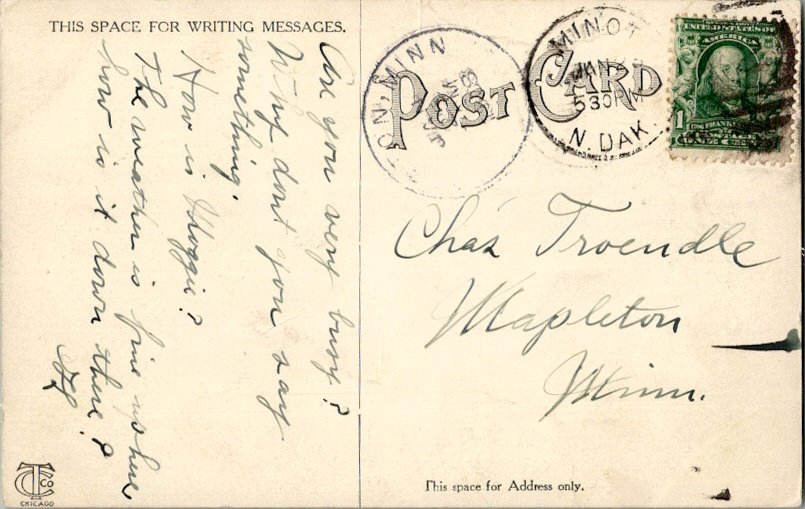 THIS SPACE FOR WRITING MESSAGES.
Are you very busy?
Why dont you say
something.
How is Hoggie?
The weather is fine up here
how is it down there?
POST CARD
TON, MINN
MINOT
JAN
530
N. DAK.
UNITED STATES OF
AMERICA
1
Chas Troendle
Mapleton
Minn.
This space for Address only.
CTCo
CHICAGO